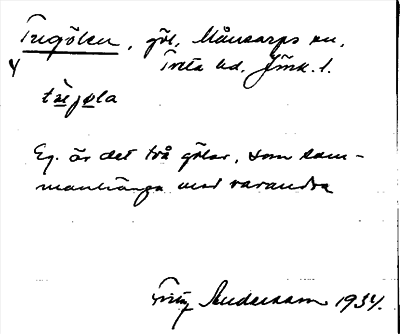 Tregölen, göl, Månsarps sn,
Tveta hd, Jönk. l.
Eg. är det två gölar, som sam-
manhänga med varandra
Andersson 1934.